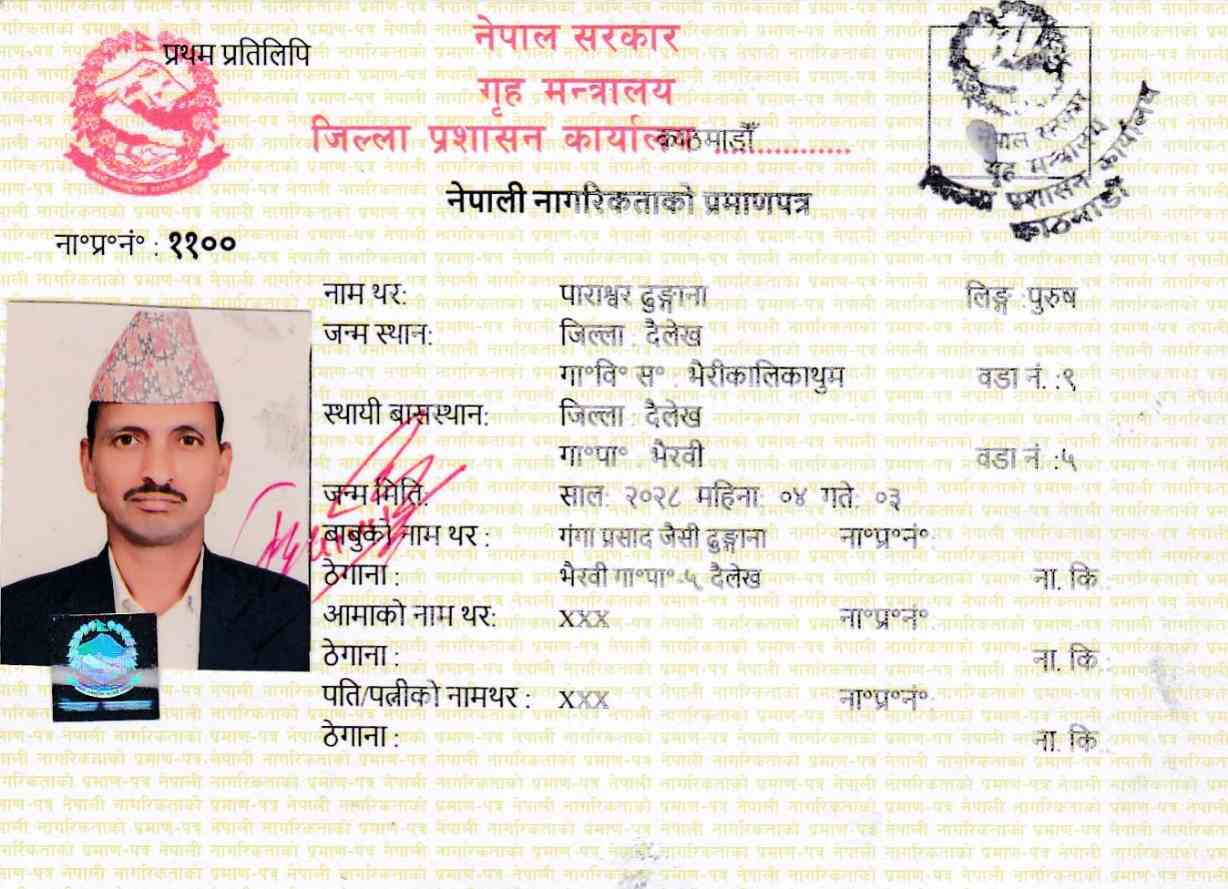 प्रथम प्रतिलिपि
नेपाल सरकार
गृह मन्त्रालय
जिल्ला प्रशासन कार्यालय काठमाडौं
नेपाल सरकार
गृह मन्त्रालय
जिल्ला प्रशासन कार्यालय
काठमाडौं
नेपाली नागरिकताको प्रमाणपत्र
ना°प्र°नं° : ११००
नाम थर: पाराश्वर ढुङ्गाना लिङ्ग :पुरुष
जन्म स्थान: जिल्ला : दैलेख
गा°वि° स° : भैरीकालिकाथुम वडा नं. :९
स्थायी बासस्थान: जिल्ला : दैलेख
गा°पा° भैरवी वडा नं :५
जन्म मिति: साल: २०२८ महिना: ०४ गते: ०३
बाबुको नाम थर : गंगा प्रसाद जैसी ढुङ्गाना ना°प्र°नं°:
ठेगाना : भैरवी गा°पा°-५ दैलेख ना. कि.:
आमाको नाम थर: xxx ना°प्र°नं°:
ठेगाना : ना. कि.:
पति/पत्नीको नामथर : xxx ना°प्र°नं°:
ठेगाना : ना. कि.: